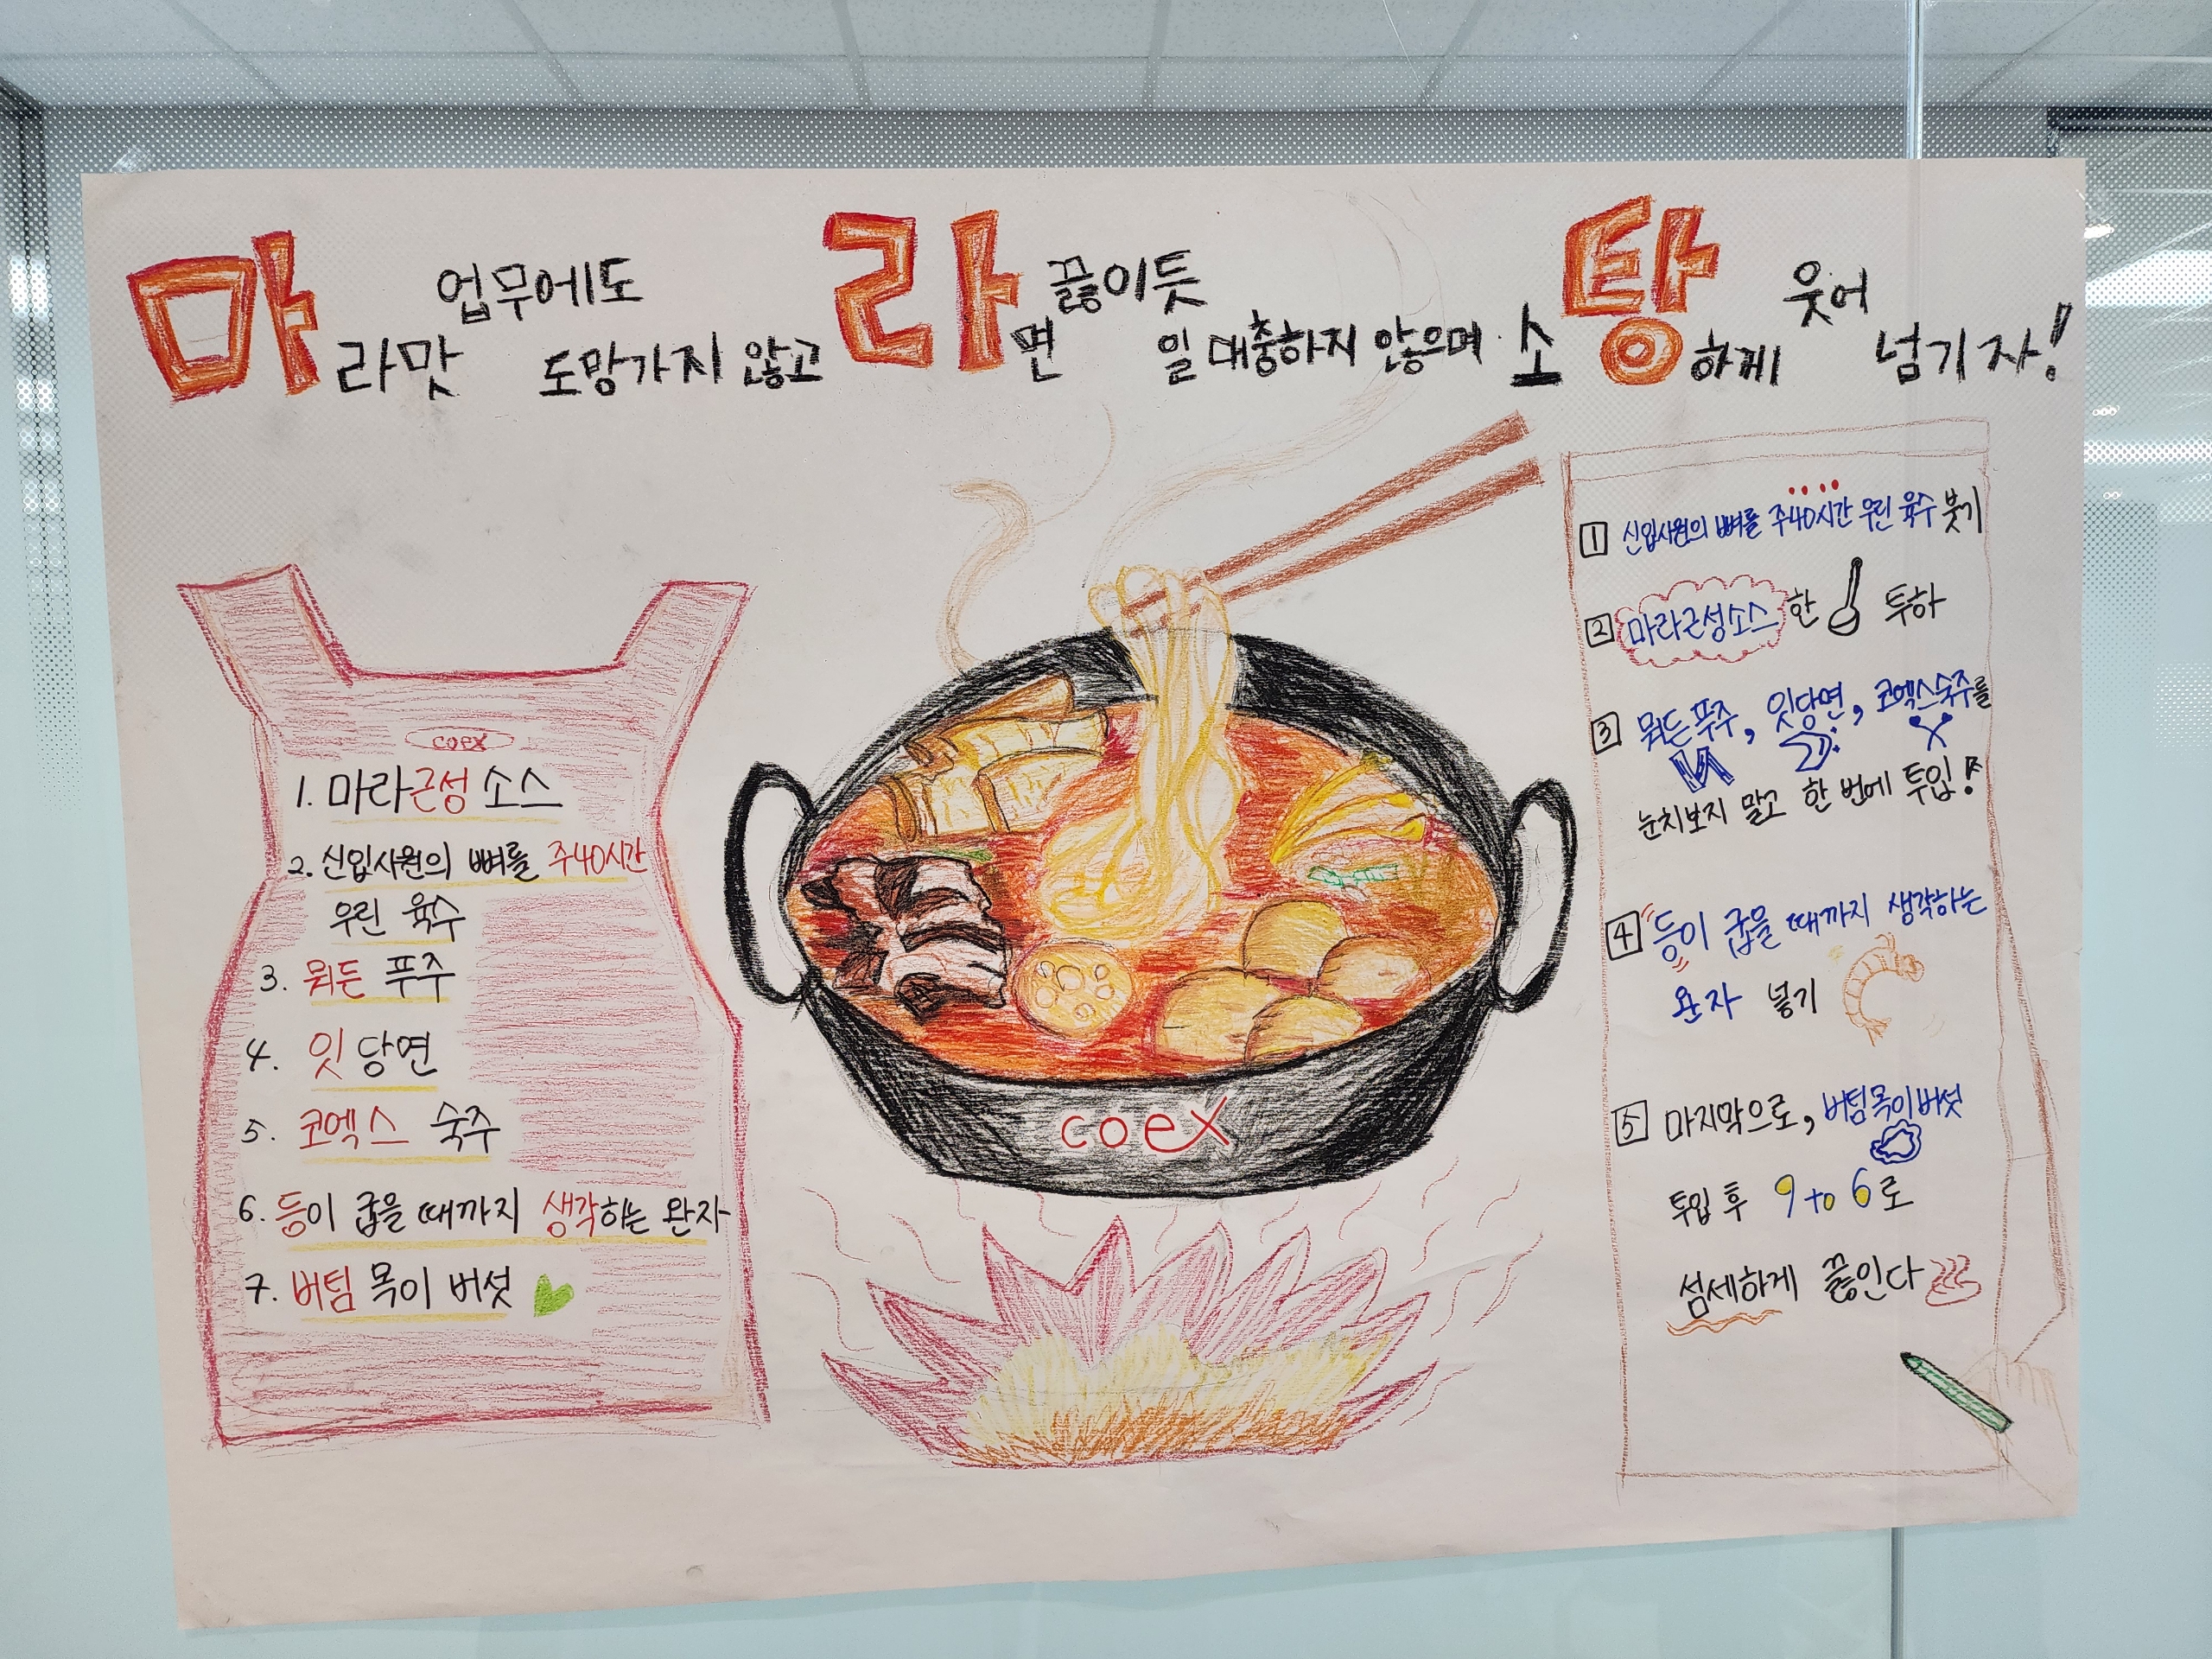 마라맛 업무에도 도망가지 않고 라면 끓이듯 일 대충하지 않으며 소탕하게 웃어 넘기자!
coex
1. 마라근성 소스
2. 신입사원의 뼈를 주40시간
우린 육수
3. 뭐든 푸주
4. 잇 당면
5. 코엑스 숙주
6. 등이 굽을 때까지 생각하는 완자
7. 버팀 목이 버섯
coex
1 신입사원의 뼈를 주40시간 우린 육수 붓기
2 마라근성소스 한 투하
3 뭐든푸주, 잇당면, 코엑스숙주를
눈치보지 말고 한 번에 투입!
4 등이 굽을 때까지 생각하는
완자 넣기
5 마지막으로, 버팀목이버섯
투입 후 9 to 6로
섬세하게 끓인다